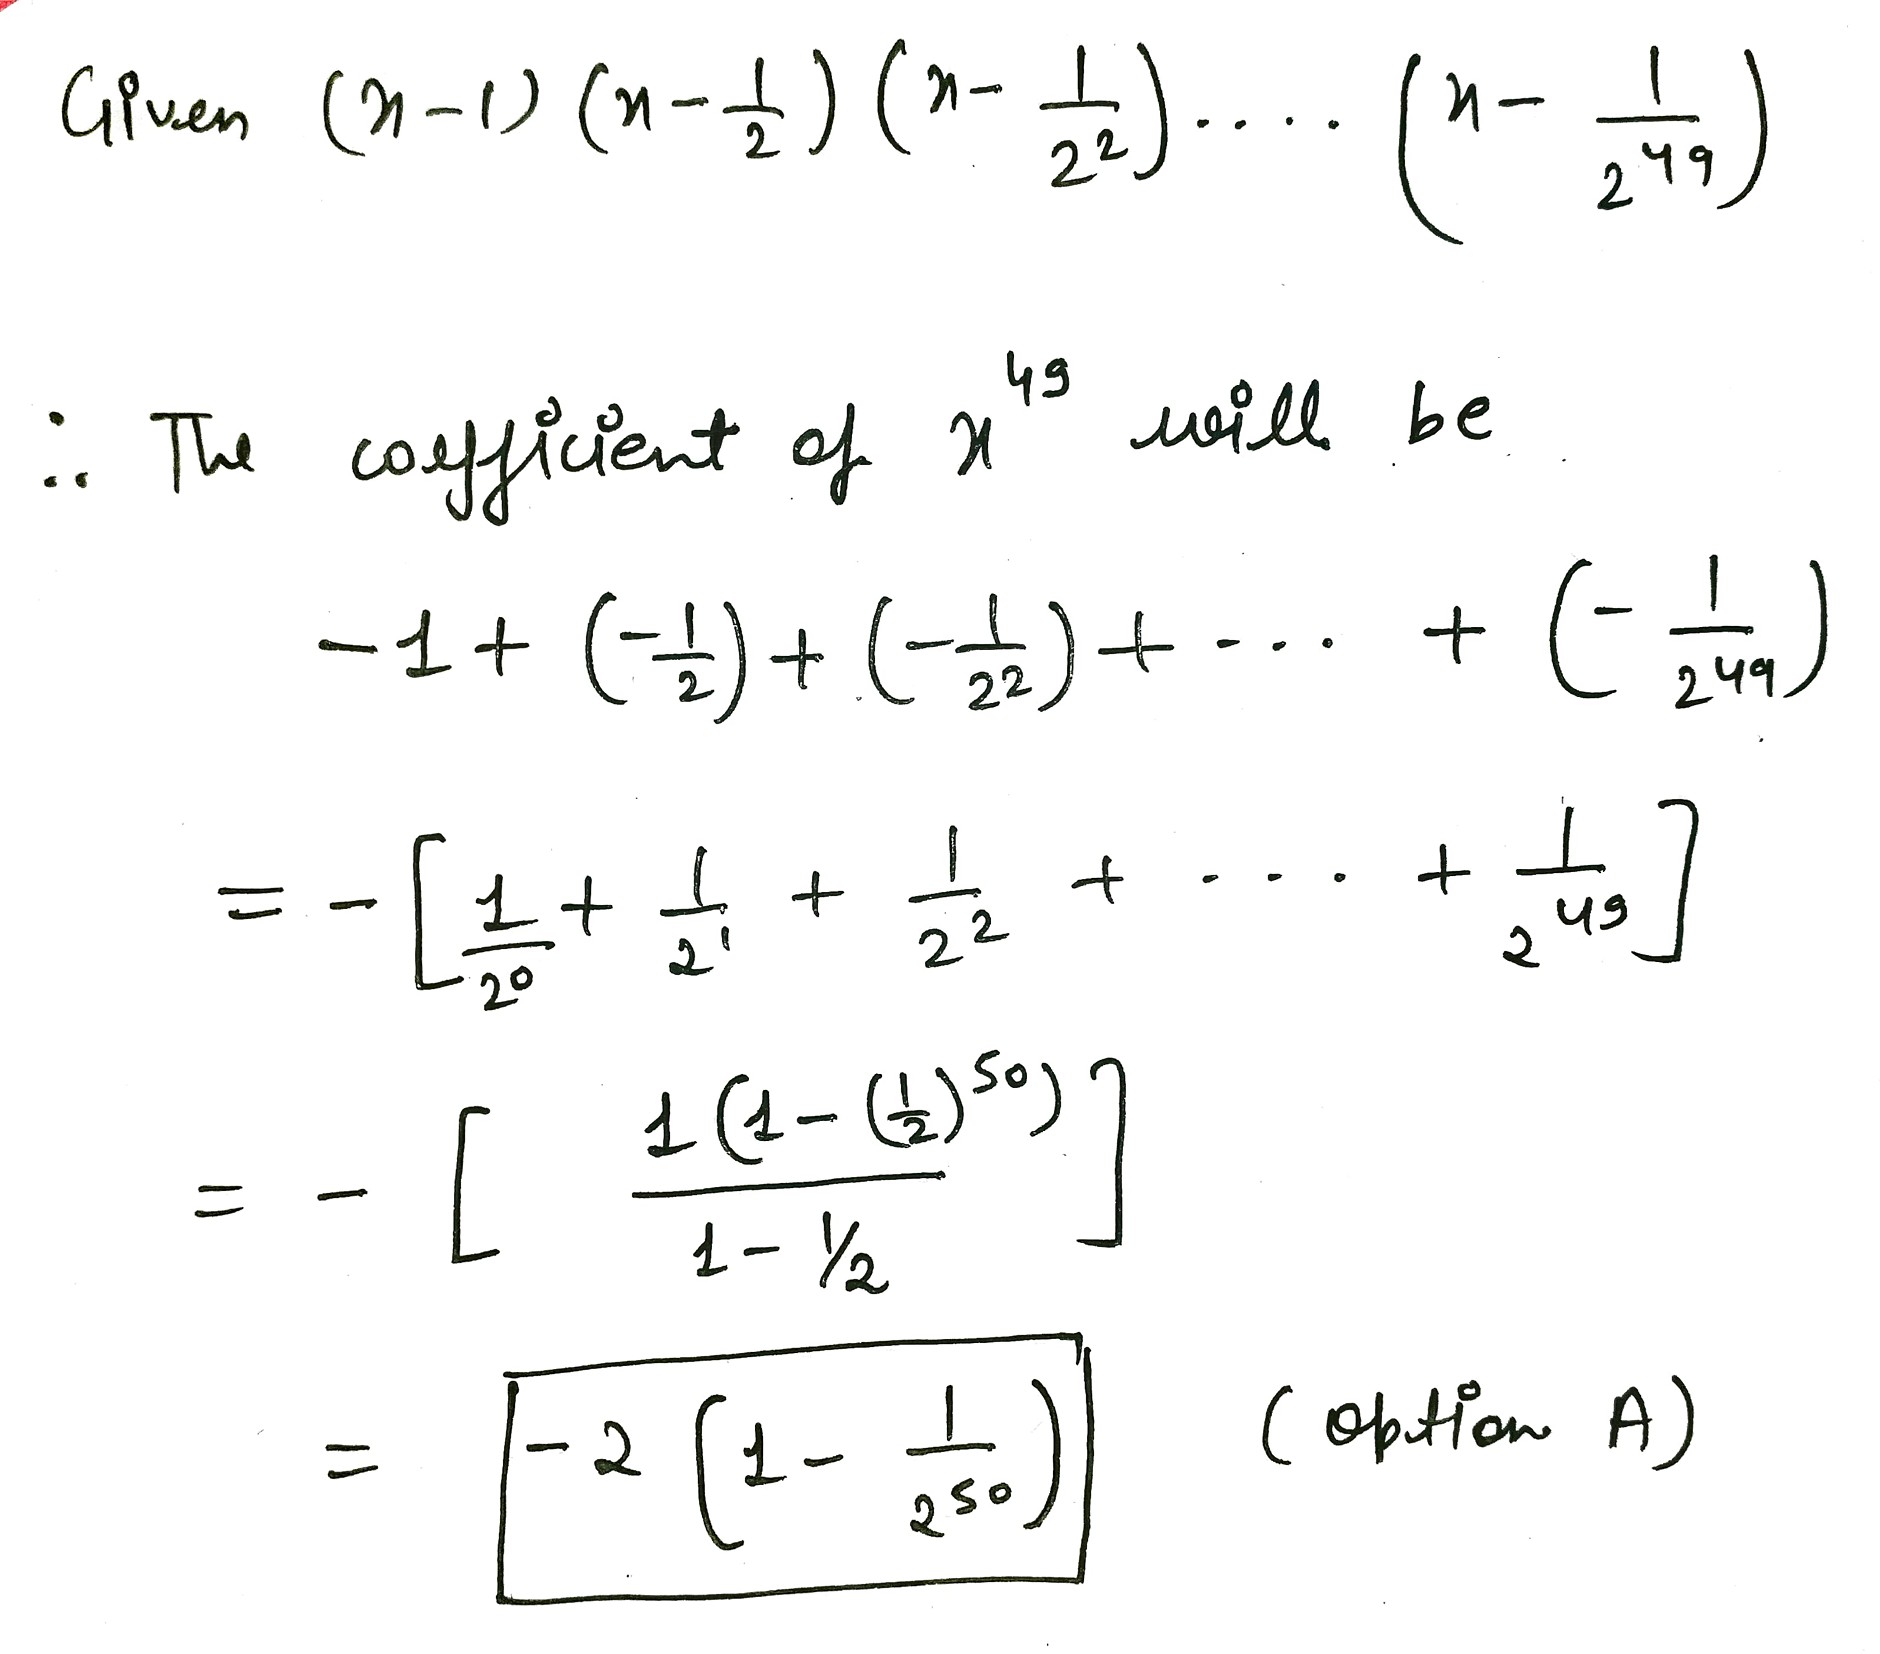 Given (x-1) (x-1/2) (x-1/2²).... (x-1/2⁴⁹)
∴ The coefficient of x⁴⁹ will be
-1 + (-1/2) + (-1/2²) + .... + (-1/2⁴⁹)
= -[1/2⁰ + 1/2¹ + 1/2² + .... + 1/2⁴⁹]
= -[1(1-(1/2)⁵⁰)/(1-1/2)]
= -2(1-1/2⁵⁰) (option A)